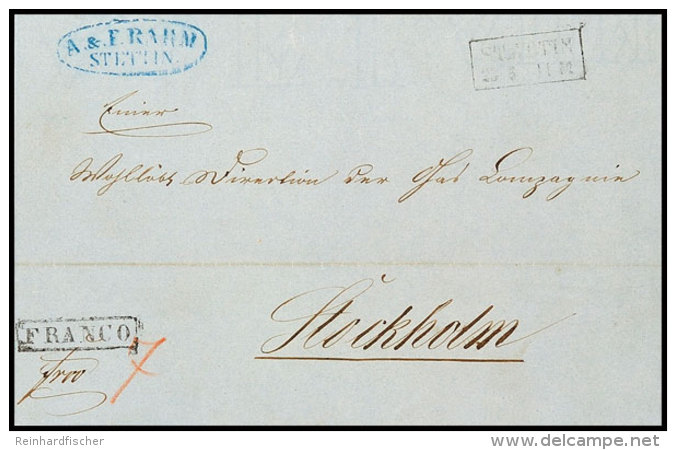 A. & F. RAHM
STETTIN.
STETTIN
Einer
Wohllöbl. Direction der Gas Compagnie
Stockholm
FRANCO
frco
7
Reinhardfischer
www.delcampe.net